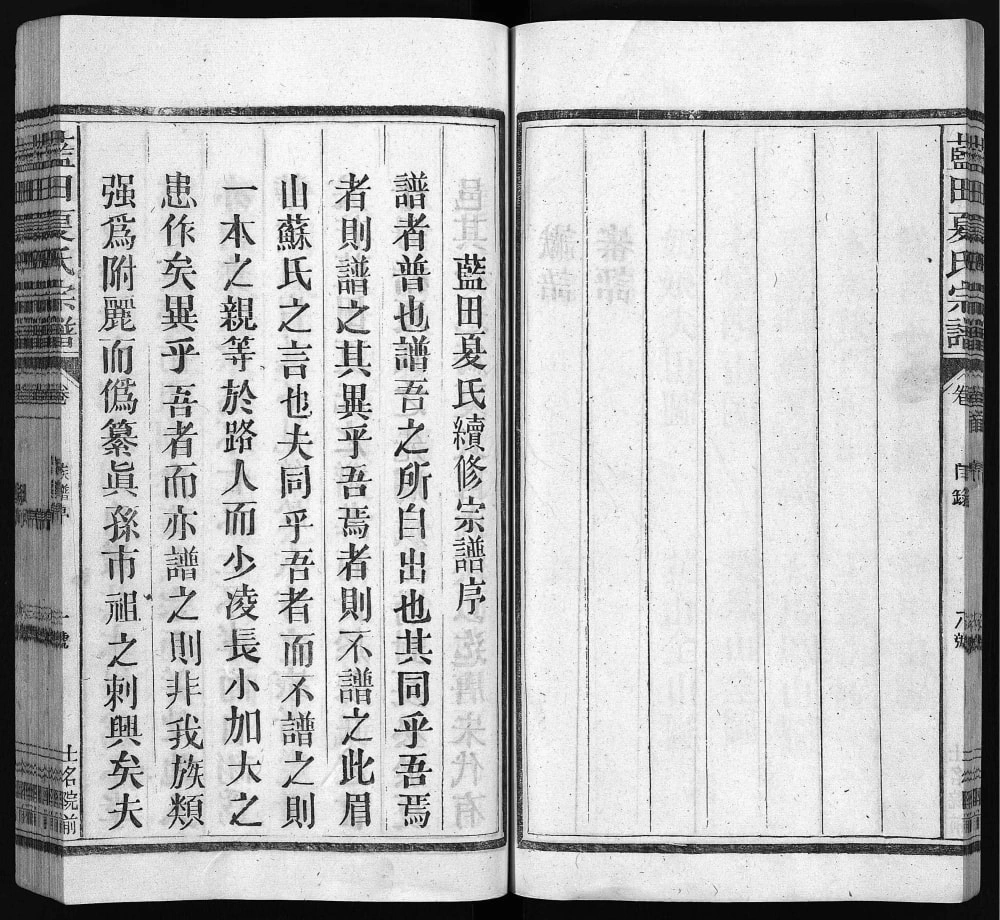 藍田夏氏宗譜
卷首
目錄
八號
藍田夏氏續修宗譜序
譜者普也譜吾之所自出也其同乎吾焉
者則譜之其異乎吾焉者則不譜之此眉
山蘇氏之言也夫同乎吾者而不譜之則
一本之親等於路人而少凌長小加大之
患作矣異乎吾者而亦譜之則非我族類
强爲附麗而僞纂眞孫市祖之刺興矣夫
藍田夏氏宗譜
卷
族譜序
一號